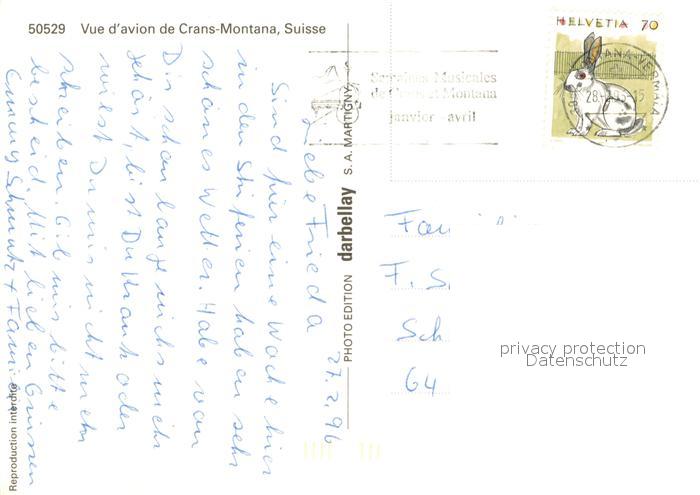 50529 Vue d'avion de Crans-Montana, Suisse
HELVETIA 70
Semaines Musicales
de Crans et Montana
janvier - avril
27.2.96
Liebe Frieda
Sind für eine Woche hier
in den Skiferien haben sehr
schönes Wetter. Habe von
Dir schon lange nichts mehr
gehört, bist Du krank oder
willst Du mir nicht mehr
schreiben. Gib mir bitte
bescheid. Mit lieben Grüssen
Emmy + Familie
PHOTO EDITION darbellay S. A. MARTIGNY
Reproduction interdite
Fam
F. S.
Sch
64
privacy protection
Datenschutz